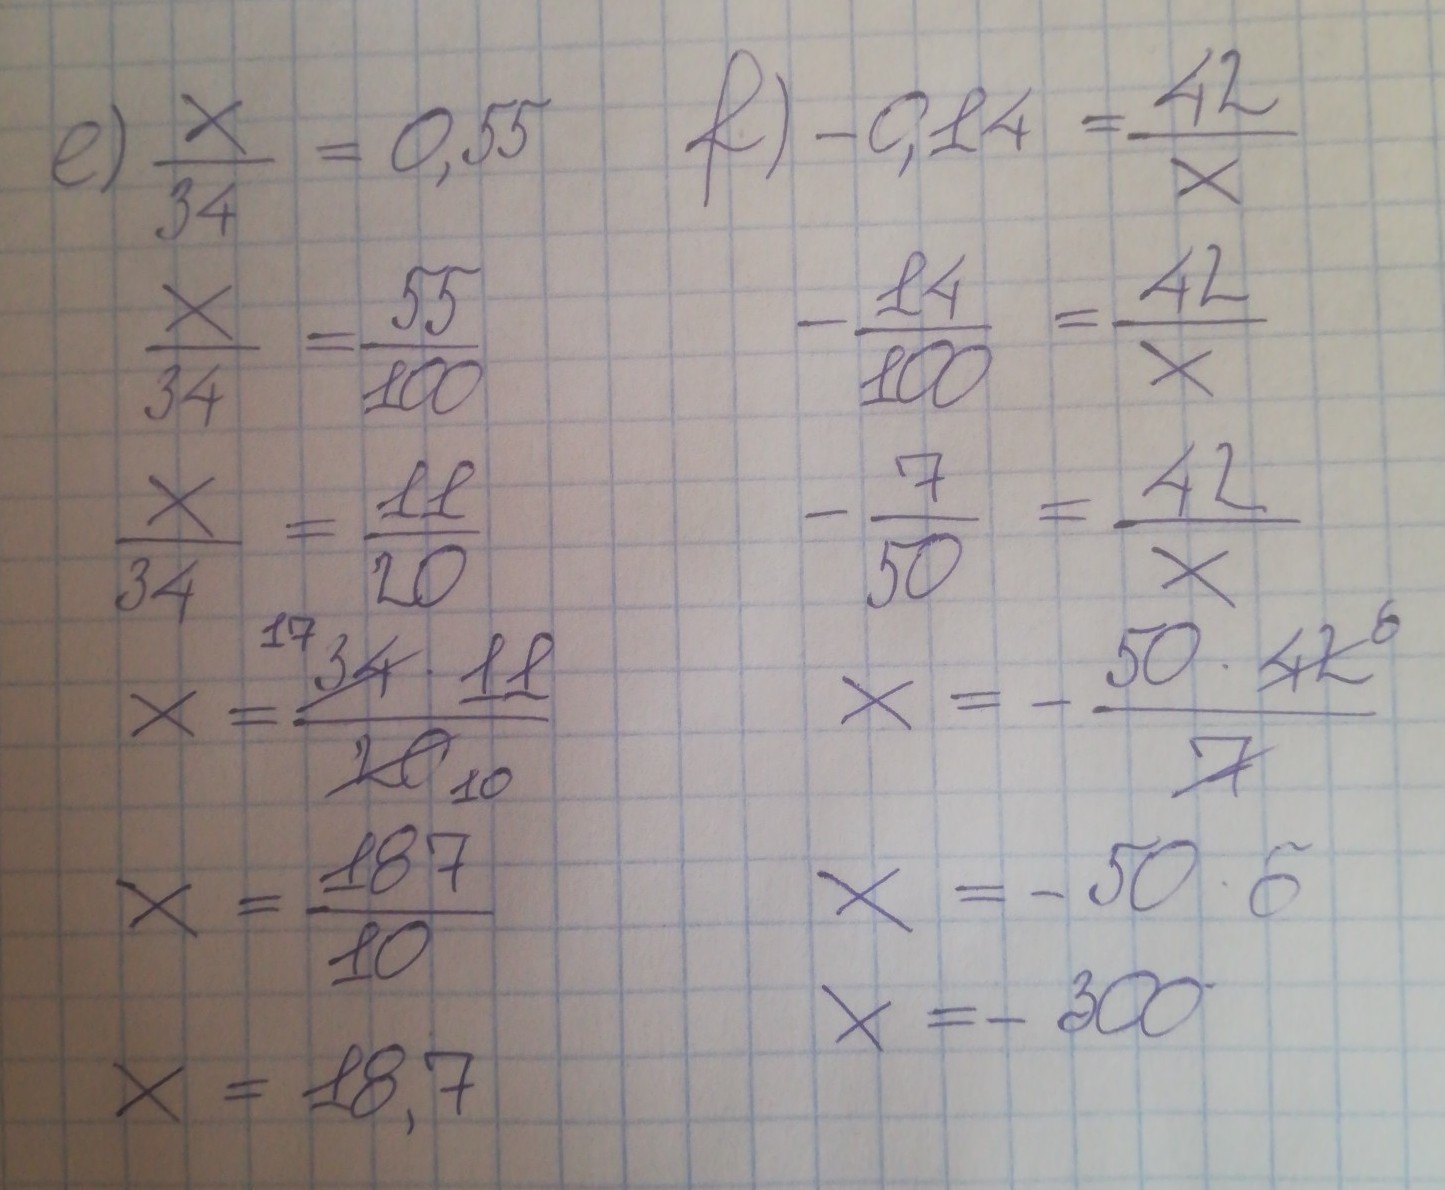 e) x/34 = 0,55
x/34 = 55/100
x/34 = 11/20
x = 34 · 11 / 20 17 10
x = 187/10
x = 18,7
f) -0,14 = 42/x
- 14/100 = 42/x
- 7/50 = 42/x
x = - 50 · 42 / 7 6
x = - 50 · 6
x = - 300